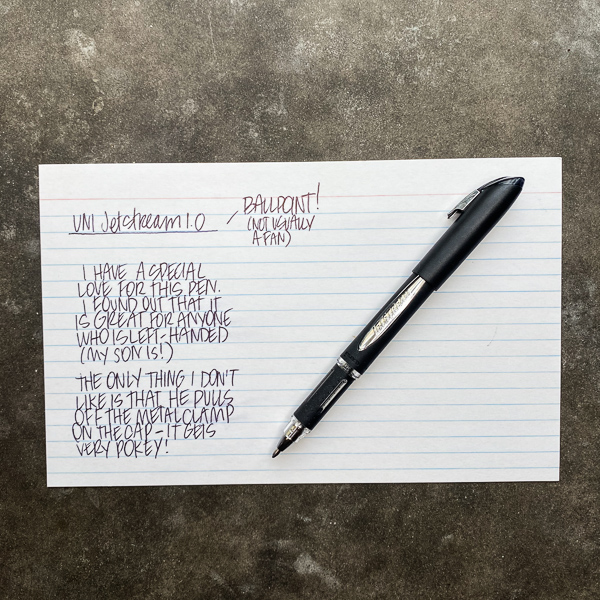 UNI Jetstream 1.0
BALLPOINT!
(NOT USUALLY
A FAN)
I HAVE A SPECIAL
LOVE FOR THIS PEN.
I FOUND OUT THAT IT
IS GREAT FOR ANYONE
WHO IS LEFT-HANDED
(MY SON IS!)
THE ONLY THING I DON'T
LIKE IS THAT HE PULLS
OFF THE METAL CLAMP
ON THE CAP - IT GETS
VERY POKEY!
JETSTREAM